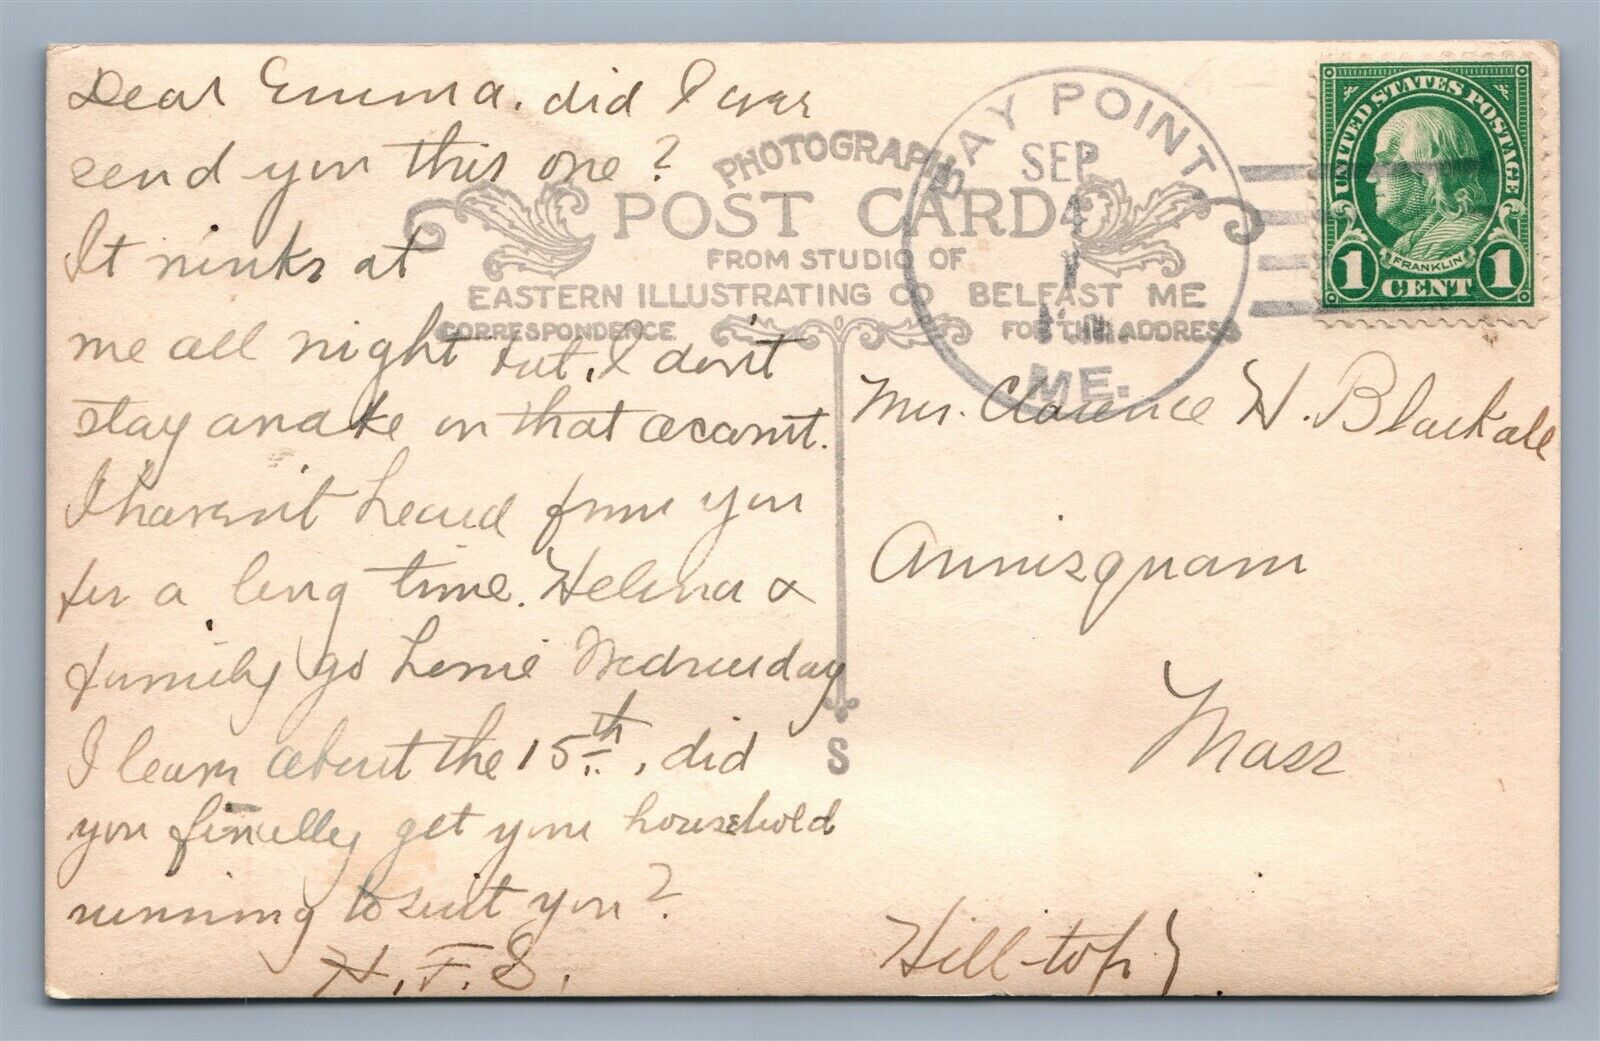 Dear Emma. did I ever
send you this one?
It winks at
me all night but, I don't
stay awake on that account.
I haven't heard from you
for a long time. Helena &
family go home Wednesday
I learn about the 15th., did
you finally get your household
running to suit you?
H. F. S.
PHOTOGRAPHIC
POST CARD
FROM STUDIO OF
EASTERN ILLUSTRATING CO BELFAST ME
CORRESPONDENCE
FOR THE ADDRESS
S
BAY POINT,
SEP
4
ME.
UNITED STATES POSTAGE
FRANKLIN
1 CENT 1
Mrs. Clarence H. Blackall
Annisquam
Mass
Hill-top